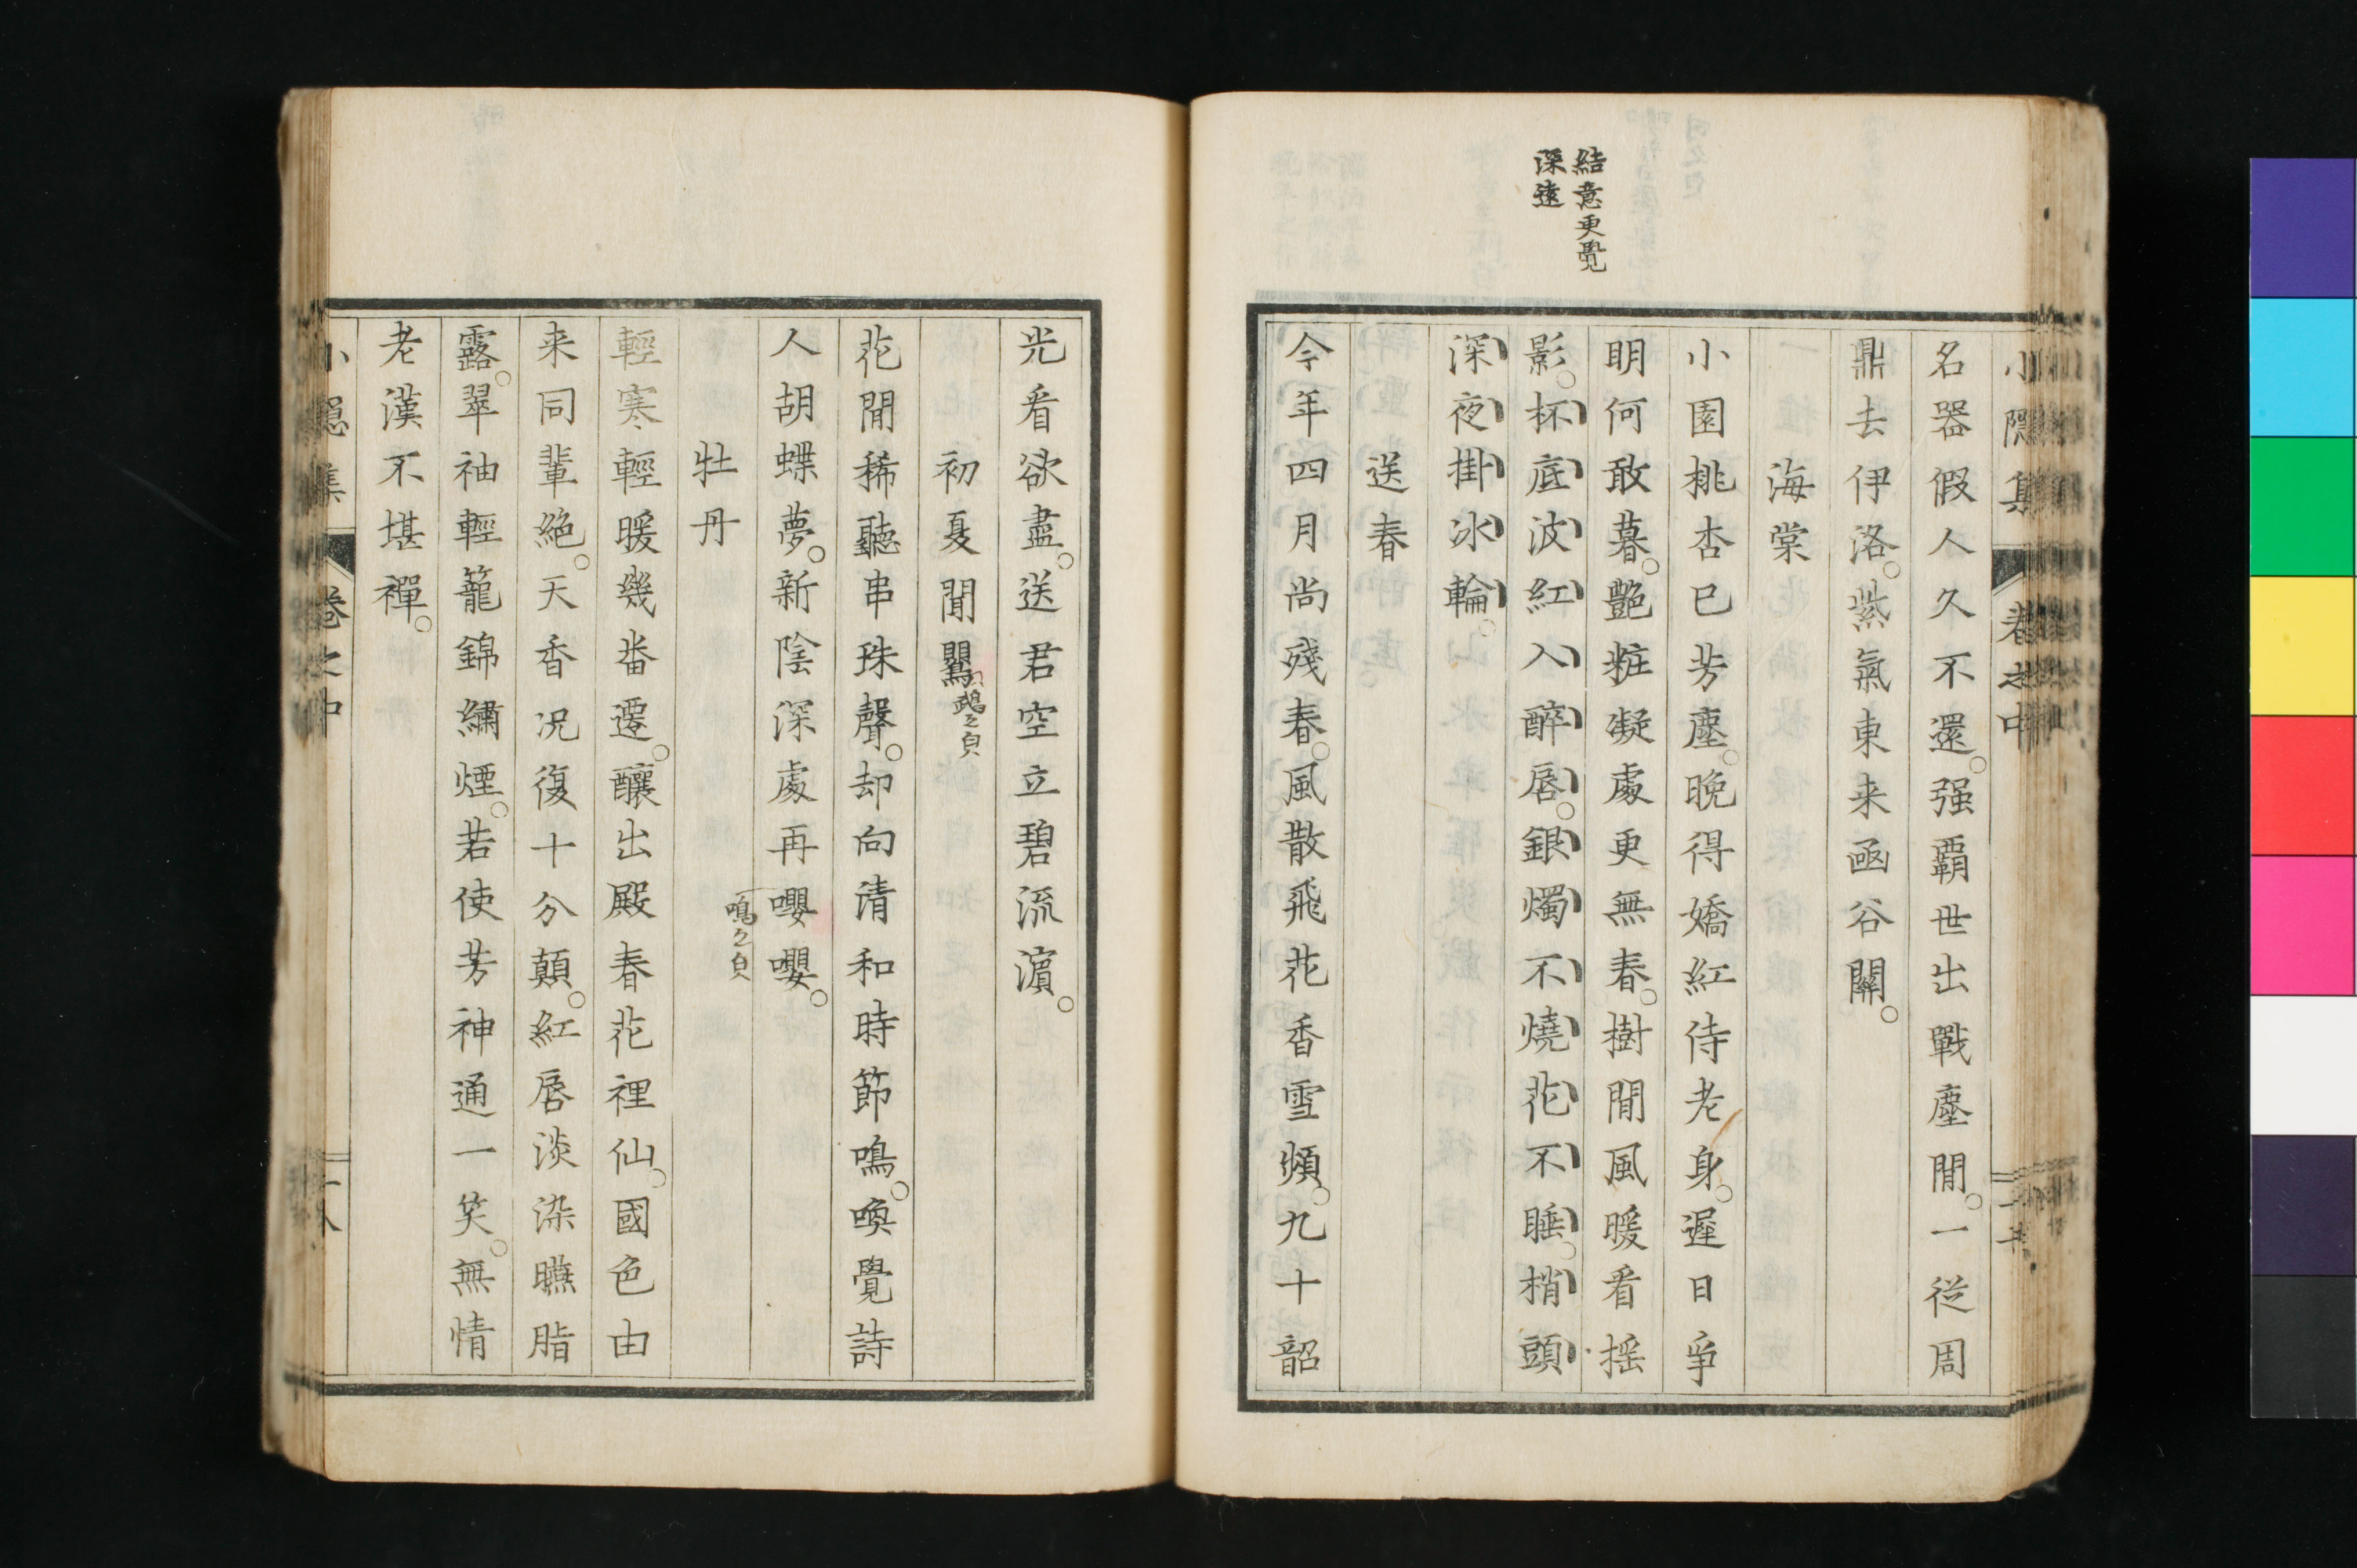 結意更覺
深遠
小隱集 卷之中
名器假人久不還。强覇世出戰塵閒。一從周
鼎去伊洛。紫氣東来函谷關。
海棠
小園桃杏已芳塵。晩得嬌紅侍老身。遲日爭
明何敢暮。艶粧凝處更無春。樹閒風暖看揺
影。杯底波紅入醉唇。銀燭不燒花不睡。梢頭
深夜掛冰輪。
送春
今年四月尚殘春。風散飛花香雪頻。九十韶
光看欲盡。送君空立碧流濵。
初夏聞鸎
鵡之皃
花閒稀聽串珠聲。却向清和時節鳴。喚覺詩
人胡蝶夢。新陰深處再嚶嚶。
鳴之皃
牡丹
輕寒輕暖幾番遷。釀出殿春花裡仙。國色由
来同輩絶。天香况復十分顛。紅唇淡染臙脂
露。翠袖輕籠錦繡煙。若使芳神通一笑。無情
老漢不堪禪。
小隱集 卷之中